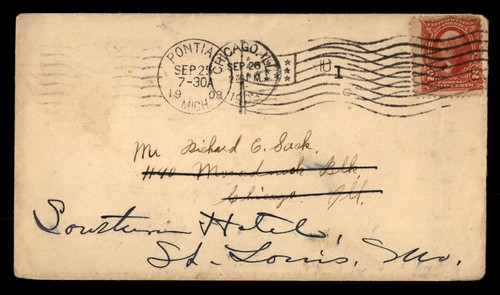 PONTIAC
SEP 25
7-30A
19 03
MICH.
CHICAGO, ILL.
SEP 26
PM
1903
1
TWO CENTS
Mr Richard C. Sack.
1140 Monadnock Blk.
Chicago Ill.
Southern Hotel,
St. Louis, Mo.